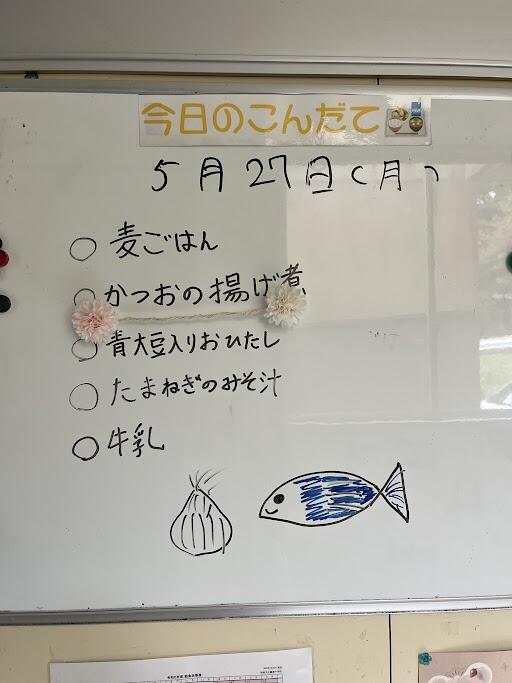 今日のこんだて
5月27日(月)
○ 麦ごはん
○ かつおの揚げ煮
○ 青大豆入りおひたし
○ たまねぎのみそ汁
○ 牛乳